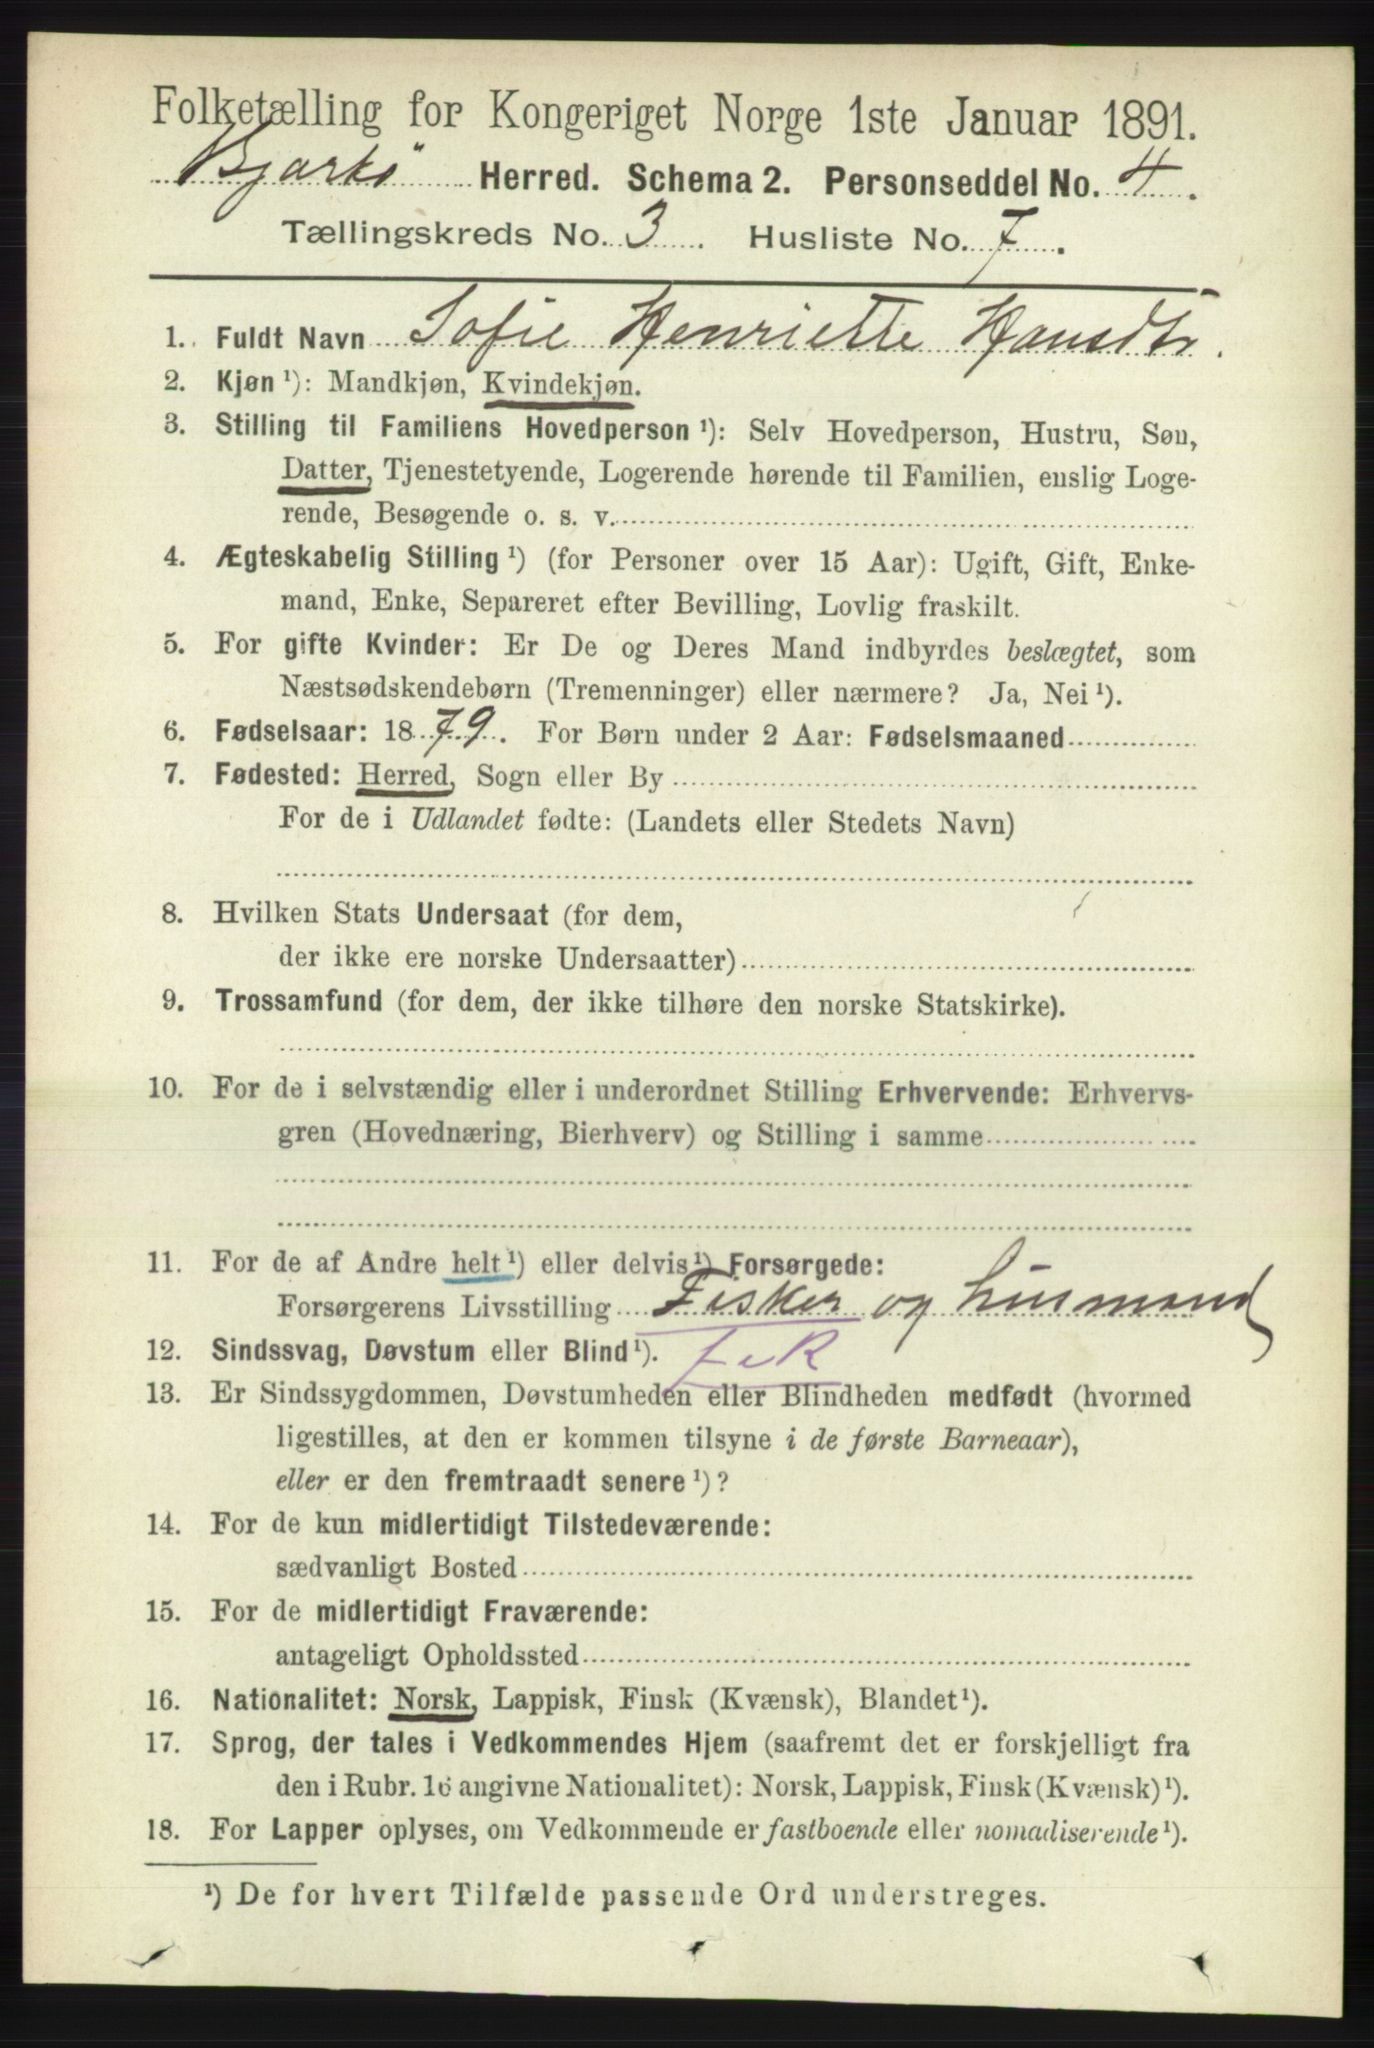 Folketælling for Kongeriget Norge 1ste Januar 1891.
Bjarkö Herred. Schema 2. Personseddel No. 4.
Tællingskreds No. 3. Husliste No. 7.
1. Fuldt Navn Sofie Henriette Hansdtr.
2. Kjøn ¹): Mandkjøn, Kvindekjøn.
3. Stilling til Familiens Hovedperson ¹): Selv Hovedperson, Hustru, Søn,
Datter, Tjenestetyende, Logerende hørende til Familien, enslig Loge-
rende, Besøgende o. s. v.
4. Ægteskabelig Stilling ¹) (for Personer over 15 Aar): Ugift, Gift, Enke-
mand, Enke, Separeret efter Bevilling, Lovlig fraskilt.
5. For gifte Kvinder: Er De og Deres Mand indbyrdes beslægtet, som
Næstsødskendebørn (Tremenninger) eller nærmere? Ja, Nei ¹).
6. Fødselsaar: 1879. For Børn under 2 Aar: Fødselsmaaned
7. Fødested: Herred, Sogn eller By
For de i Udlandet fødte: (Landets eller Stedets Navn)
8. Hvilken Stats Undersaat (for dem,
der ikke ere norske Undersaatter)
9. Trossamfund (for dem, der ikke tilhøre den norske Statskirke).
10. For de i selvstændig eller i underordnet Stilling Erhvervende: Erhvervs-
gren (Hovednæring, Bierhverv) og Stilling i samme
11. For de af Andre helt ¹) eller delvis ¹) Forsørgede:
Forsørgerens Livsstilling Fisker og husmand
12. Sindssvag, Døvstum eller Blind ¹).
13. Er Sindssygdommen, Døvstumheden eller Blindheden medfødt (hvormed
ligestilles, at den er kommen tilsyne i de første Barneaar),
eller er den fremtraadt senere ¹)?
14. For de kun midlertidigt Tilstedeværende:
sædvanligt Bosted
15. For de midlertidigt Fraværende:
antageligt Opholdssted
16. Nationalitet: Norsk, Lappisk, Finsk (Kvænsk), Blandet ¹).
17. Sprog, der tales i Vedkommendes Hjem (saafremt det er forskjelligt fra
den i Rubr. 16 angivne Nationalitet): Norsk, Lappisk, Finsk (Kvænsk) ¹).
18. For Lapper oplyses, om Vedkommende er fastboende eller nomadiserende ¹).
¹) De for hvert Tilfælde passende Ord understreges.